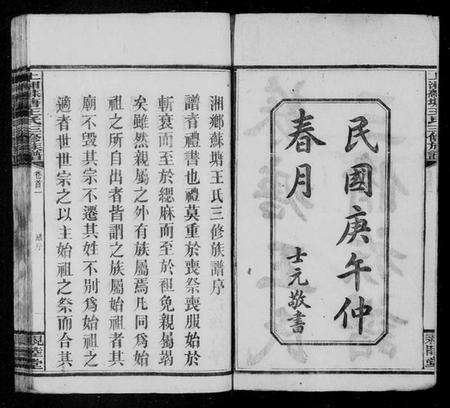 民國庚午仲
春月
士元敬書
湘鄉蘇塘王氏三修族譜序
譜者禮書也禮莫重於喪祭喪服始於
斬衰而至於緦麻而至於袒免親屬竭
矣雖然親屬之外有族屬焉凡同為始
祖之所自出者皆謂之族屬始祖者其
廟不毀其宗不遷其姓不別為始祖之
適者世世宗之以主始祖之祭而合其
卷首一
親睦堂